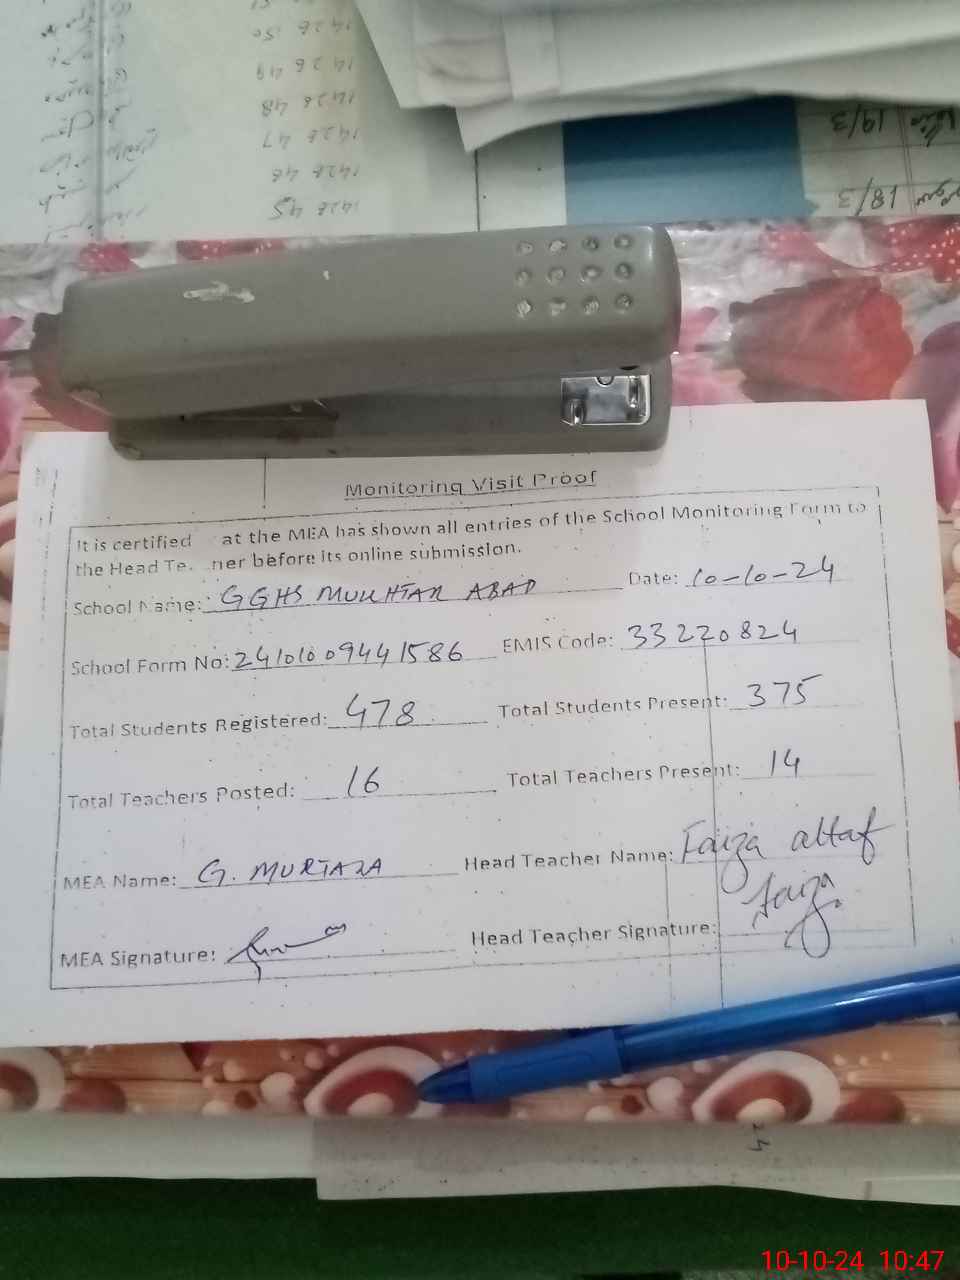 1428 50
1428 49
1428 48
1428 47
1428 46
1428 45
19/3
18/3
Monitoring Visit Proof
It is certified at the MEA has shown all entries of the School Monitoring Form to
the Head Te. ner before its online submission.
School Name: GGHS MUKHTAR ABAD Date: 10-10-24
School Form No: 24101009441586 EMIS Code: 33220824
Total Students Registered: 478 Total Students Present: 375
Total Teachers Posted: 16 Total Teachers Present: 14
MEA Name: G. MURTAZA Head Teacher Name: Faiza altaf
MEA Signature: Head Teacher Signature: Faiza
10-10-24 10:47